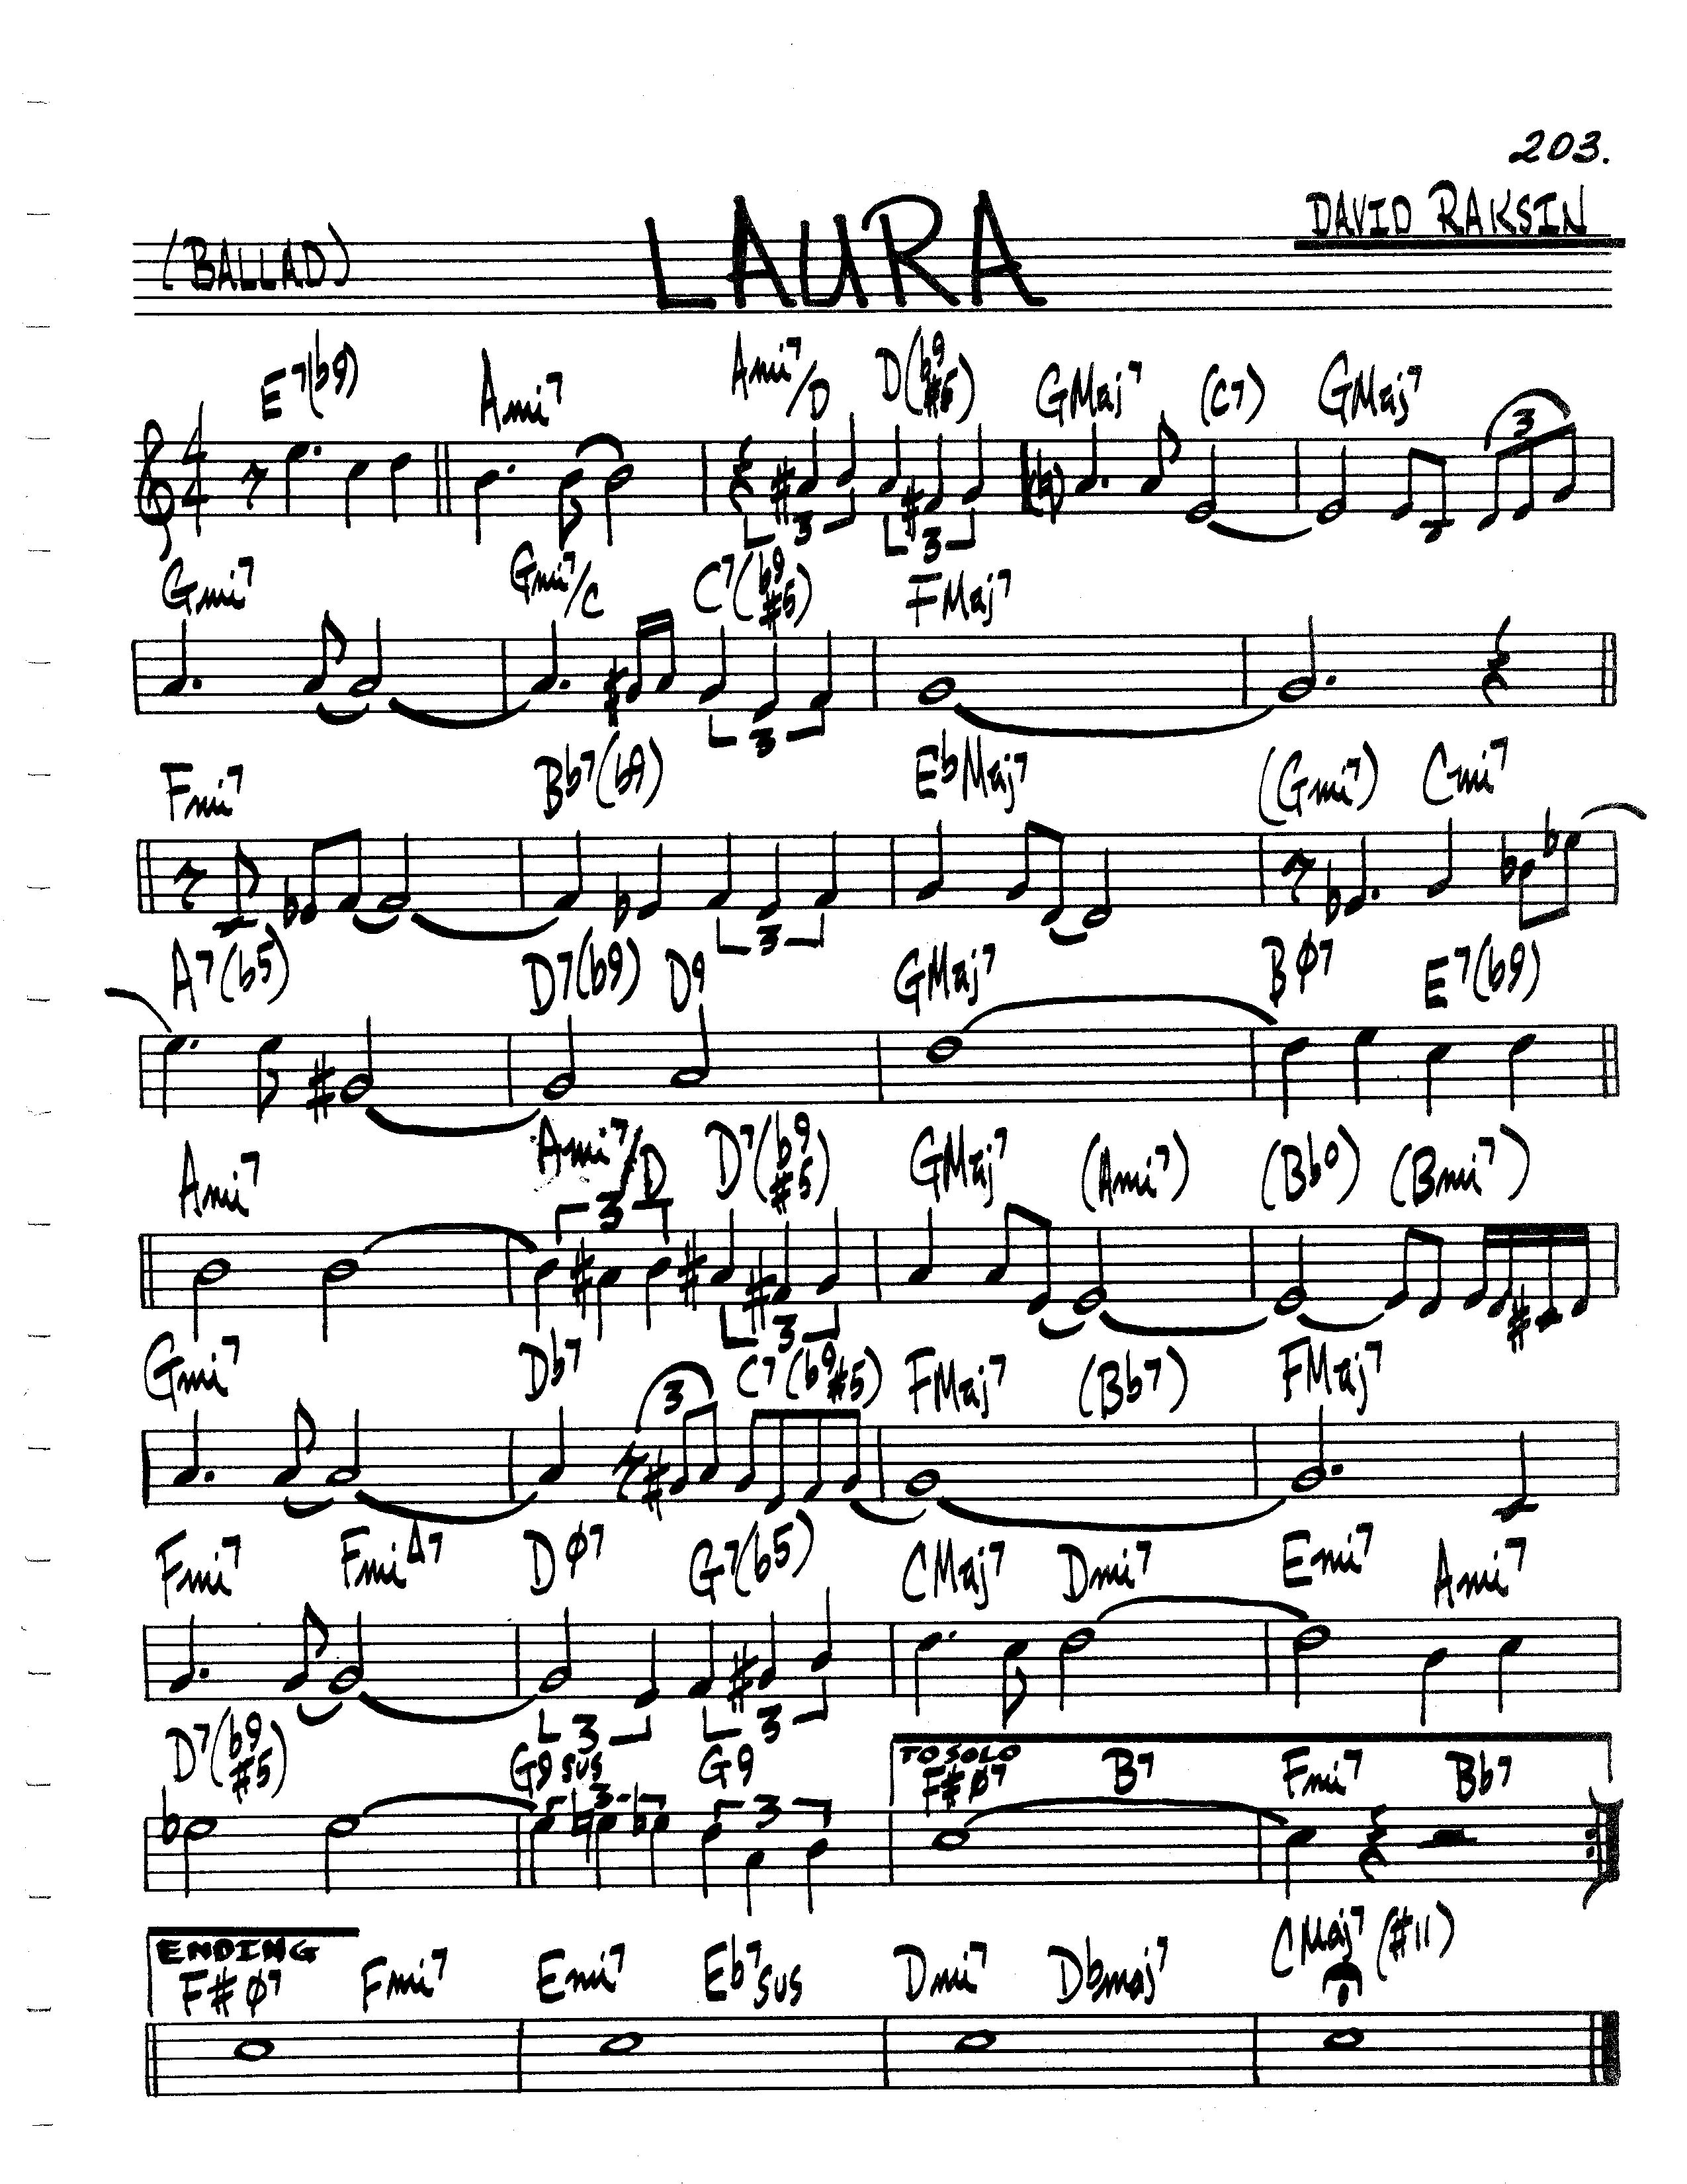 203.
DAVID RAKSIN
(BALLAD) LAURA
E7(b9) Ami7 Ami7/D D(b9 #5) GMaj7 (C7) GMaj7
4 4 3 3 3
Gmi7 Gmi7/C C7(b9 #5) FMaj7
3
Fmi7 Bb7(b9) EbMaj7 (Gmi7) Cmi7
3
A7(b5) D7(b9) D9 GMaj7 Bø7 E7(b9)
Ami7 Ami7/D D7(b9 #5) GMaj7 (Ami7) (Bbo) (Bmi7)
3 3
Gmi7 Db7 C7(b9 #5) FMaj7 (Bb7) FMaj7
3
Fmi7 FmiΔ7 Dø7 G7(b5) CMaj7 Dmi7 Emi7 Ami7
3 3
D7(b9 #5) G9 SUS G9 TO SOLO F#ø7 B7 Fmi7 Bb7
3 3
ENDING
F#ø7 Fmi7 Emi7 Eb7 SUS Dmi7 Dbmaj7 CMaj7(#11)